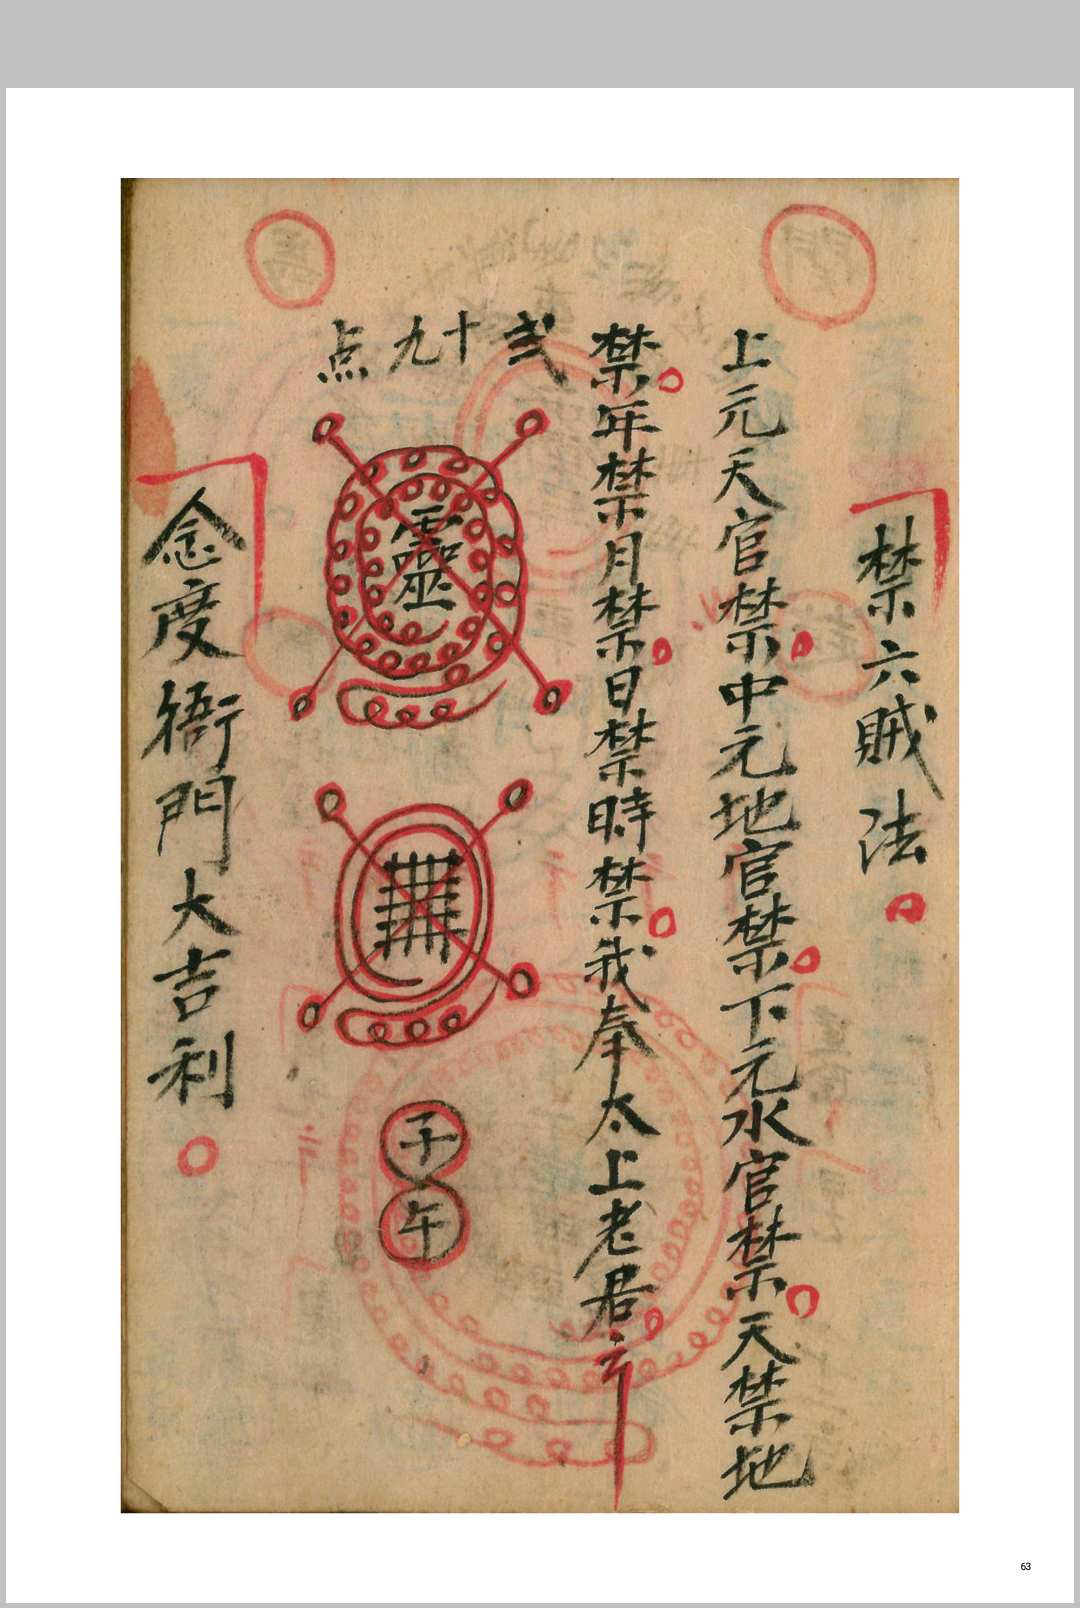 禁六賊法
上元天官禁中元地官禁下元水官禁天禁地
禁年禁月禁日禁時禁我奉太上老君
弍十九点
靈
子
午
念度衙門大吉利
63